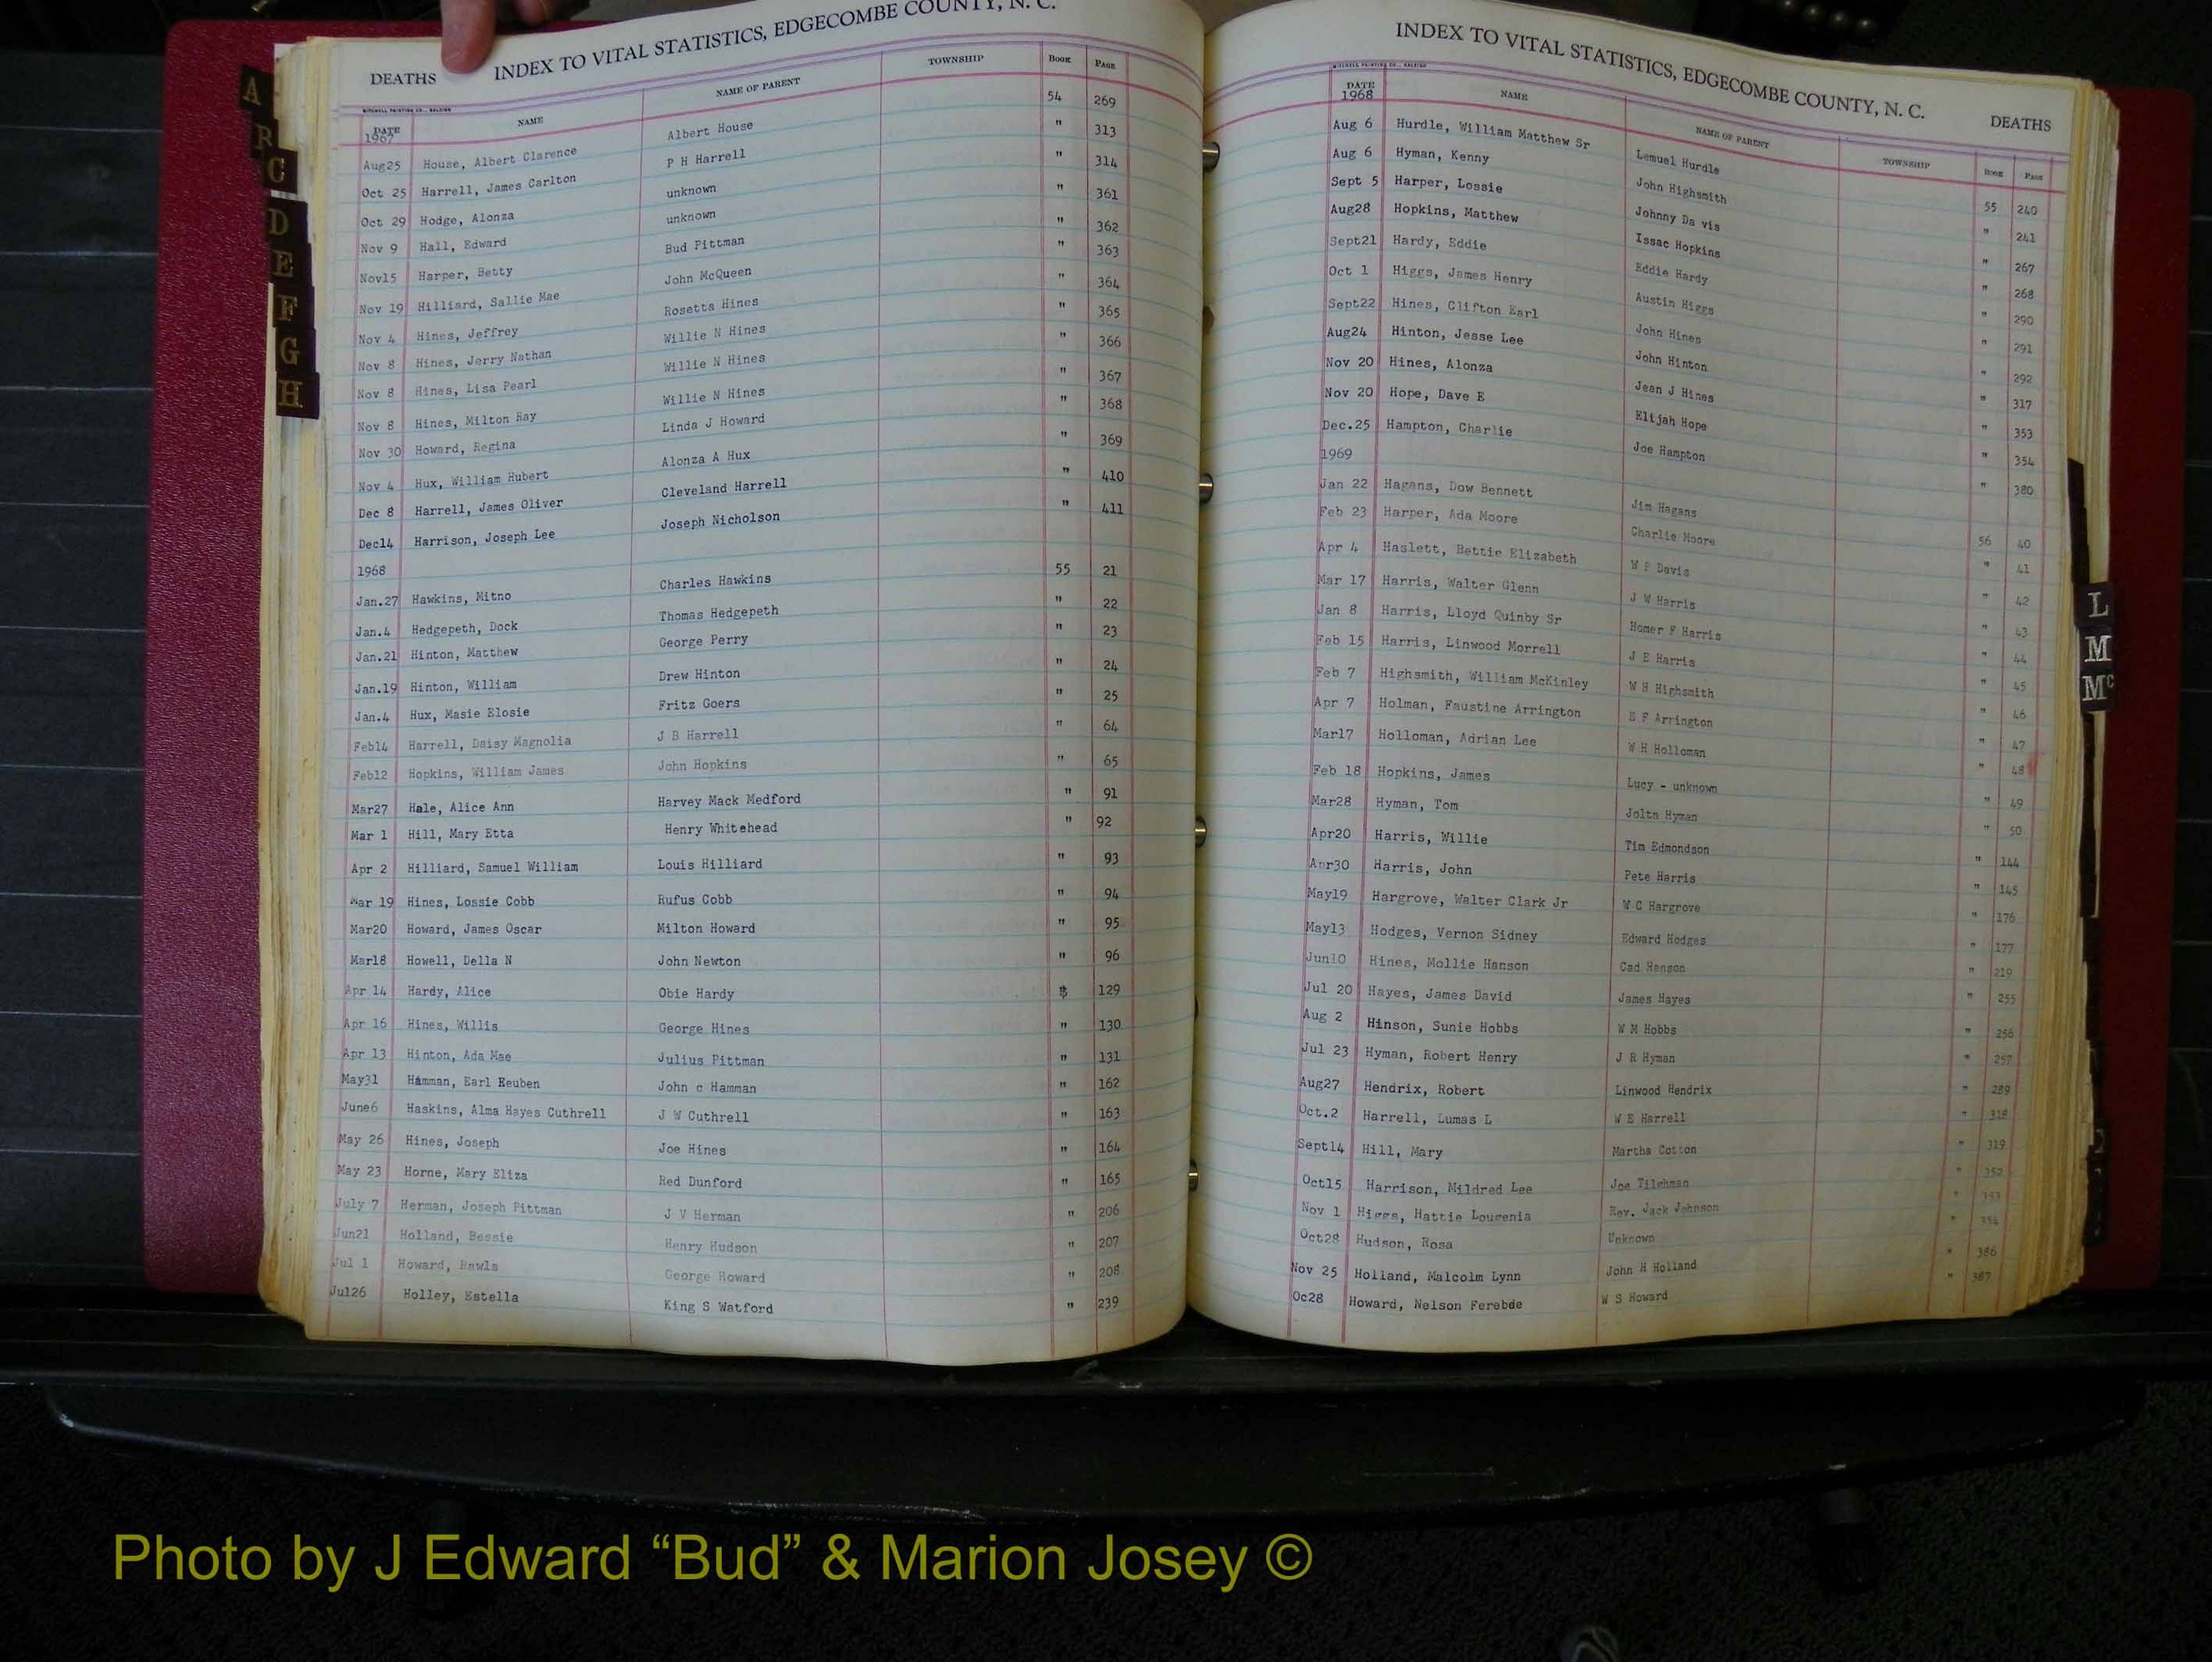 DEATHS INDEX TO VITAL STATISTICS, EDGECOMBE COUNTY, N. C.
MITCHELL PRINTING CO., RALEIGH
DATE NAME NAME OF PARENT TOWNSHIP BOOK PAGE
1967
Aug25 House, Albert Clarence Albert House 54 269
Oct 25 Harrell, James Carlton P H Harrell " 313
Oct 29 Hodge, Alonza unknown " 314
Nov 9 Hall, Edward unknown " 361
Nov15 Harper, Betty Bud Pittman " 362
Nov 19 Hilliard, Sallie Mae John McQueen " 363
Nov 4 Hines, Jeffrey Rosetta Hines " 364
Nov 8 Hines, Jerry Nathan Willie N Hines " 365
Nov 8 Hines, Lisa Pearl Willie N Hines " 366
Nov 8 Hines, Milton Ray Willie N Hines " 367
Nov 30 Howard, Regina Linda J Howard " 368
Nov 4 Hux, William Hubert Alonza A Hux " 369
Dec 8 Harrell, James Oliver Cleveland Harrell " 410
Dec14 Harrison, Joseph Lee Joseph Nicholson " 411
1968
Jan.27 Hawkins, Mitno Charles Hawkins 55 21
Jan.4 Hedgepeth, Dock Thomas Hedgepeth " 22
Jan.21 Hinton, Matthew George Perry " 23
Jan.19 Hinton, William Drew Hinton " 24
Jan.4 Hux, Masie Elosie Fritz Goers " 25
Feb14 Harrell, Daisy Magnolia J B Harrell " 64
Feb12 Hopkins, William James John Hopkins " 65
Mar27 Hale, Alice Ann Harvey Mack Medford " 91
Mar 1 Hill, Mary Etta Henry Whitehead " 92
Apr 2 Hilliard, Samuel William Louis Hilliard " 93
Mar 19 Hines, Lossie Cobb Rufus Cobb " 94
Mar20 Howard, James Oscar Milton Howard " 95
Mar18 Howell, Della N John Newton " 96
Apr 14 Hardy, Alice Obie Hardy 129
Apr 16 Hines, Willis George Hines " 130
Apr 13 Hinton, Ada Mae Julius Pittman " 131
May31 Hamman, Earl Reuben John c Hamman " 162
June6 Haskins, Alma Hayes Cuthrell J W Cuthrell " 163
May 26 Hines, Joseph Joe Hines " 164
May 23 Horne, Mary Eliza Red Dunford " 165
July 7 Herman, Joseph Pittman J V Herman " 206
Jun21 Holland, Bessie Henry Hudson " 207
Jul 1 Howard, Rawls George Howard " 208
Jul26 Holley, Estella King S Watford " 239
INDEX TO VITAL STATISTICS, EDGECOMBE COUNTY, N. C. DEATHS
MITCHELL PRINTING CO., RALEIGH
DATE NAME NAME OF PARENT TOWNSHIP BOOK PAGE
1968
Aug 6 Hurdle, William Matthew Sr Lemuel Hurdle 55 240
Aug 6 Hyman, Kenny John Highsmith " 241
Sept 5 Harper, Lossie Johnny Da vis " 267
Aug28 Hopkins, Matthew Issac Hopkins " 268
Sept21 Hardy, Eddie Eddie Hardy " 290
Oct 1 Higgs, James Henry Austin Higgs " 291
Sept22 Hines, Clifton Earl John Hines " 292
Aug24 Hinton, Jesse Lee John Hinton " 317
Nov 20 Hines, Alonza Jean J Hines " 353
Nov 20 Hope, Dave E Elijah Hope " 354
Dec.25 Hampton, Charlie Joe Hampton " 380
1969
Jan 22 Hagans, Dow Bennett Jim Hagans 56 40
Feb 23 Harper, Ada Moore Charlie Moore " 41
Apr 4 Haslett, Bettie Elizabeth W P Davis " 42
Mar 17 Harris, Walter Glenn J W Harris " 43
Jan 8 Harris, Lloyd Quinby Sr Homer F Harris " 44
Feb 15 Harris, Linwood Morrell J E Harris " 45
Feb 7 Highsmith, William McKinley W H Highsmith " 46
Apr 7 Holman, Faustine Arrington B F Arrington " 47
Mar17 Holloman, Adrian Lee W H Holloman " 48
Feb 18 Hopkins, James Lucy - unknown " 49
Mar28 Hyman, Tom Joltn Hyman " 50
Apr20 Harris, Willie Tim Edmondson " 144
Apr30 Harris, John Pete Harris " 145
May19 Hargrove, Walter Clark Jr W C Hargrove " 176
May13 Hodges, Vernon Sidney Edward Hodges " 177
Jun10 Hines, Mollie Hanson Cad Hanson " 219
Jul 20 Hayes, James David James Hayes " 255
Aug 2 Hinson, Sunie Hobbs W M Hobbs " 256
Jul 23 Hyman, Robert Henry J R Hyman " 257
Aug27 Hendrix, Robert Linwood Hendrix " 289
Oct.2 Harrell, Lumas L W E Harrell " 318
Sept14 Hill, Mary Martha Cotton " 319
Oct15 Harrison, Mildred Lee Joe Tilghman " 352
Nov 1 Higgs, Hattie Lougenia Rev. Jack Johnson " 353
Oct28 Hudson, Rosa Unknown " 354
Nov 25 Holland, Malcolm Lynn John H Holland " 386
Oc28 Howard, Nelson Ferebde W S Howard " 387
A
B
C
D
E
F
G
H
L
M
Mc
Photo by J Edward “Bud” & Marion Josey ©